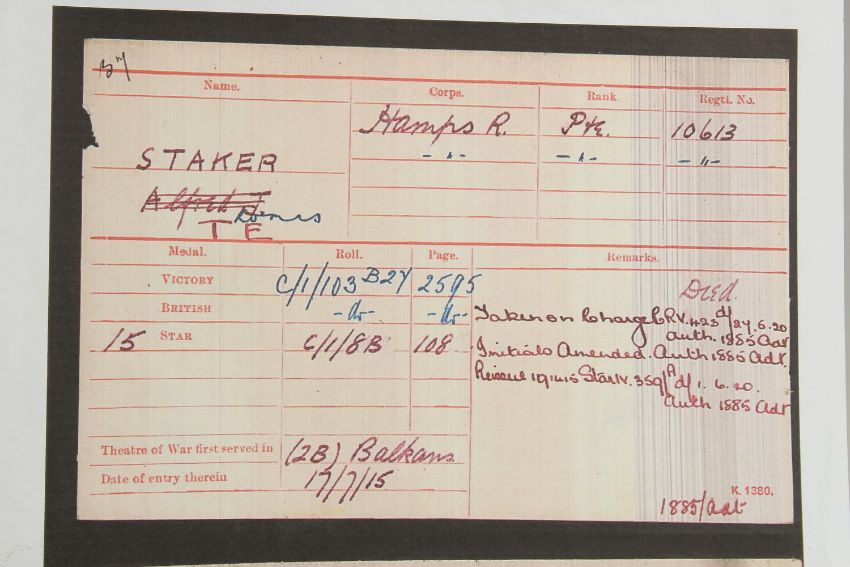 Name. Corps. Rank Regtl. No.
Hamps R. Pte. 10613
STAKER -"- -"- -"-
Alfred T
T E
Medal. Roll. Page. Remarks.
VICTORY C/1/103 B27 2595 Died.
BRITISH -do- -do- Taken on Charge C.R.V. 423 d/24.6.20
auth. 1885 Adt
15 STAR C/1/8B 108 Initials Amended. Auth 1885 Adt.
Reissue 1914 15 Star I.V. 359/A d/ 1. 6. 20.
Auth 1885 Adt
Theatre of War first served in (2B) Balkans
Date of entry therein 17/7/15
K. 1380.
1885/Adt